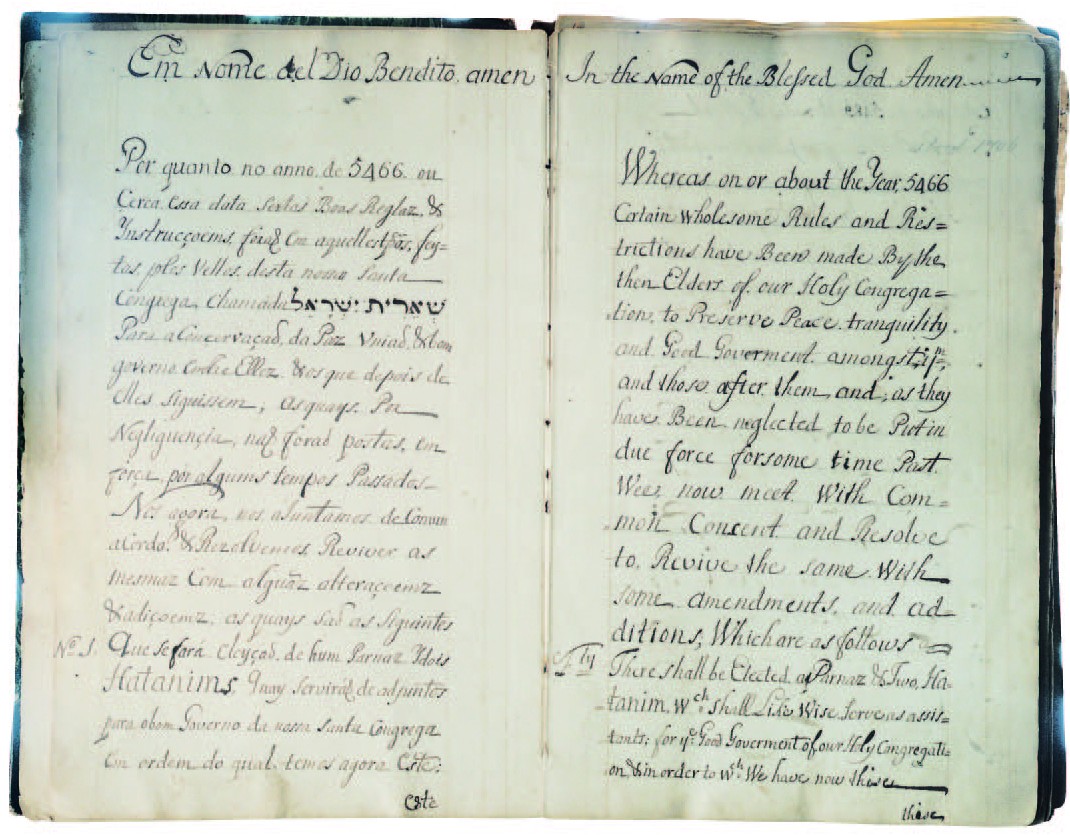 Em Nome del Dio Bendito. amen
Por quanto no anno. de 5466. ou
Cerca essa data Sertas Boas Reglaz, &
Instrucçoems, foraõ em aquelles tpõs, fey=
tas, plos Velhos, desta nossa Santa
Congrega. Chamada שארית ישראל
Para a Concervaçaõ, da Paz Vniaõ, & bom
governo. Entre Ellez. & os que depois de
Elles Siguissem; asquays. Por
Negliguençia, naõ foraõ postas, em
força, por alguns tempos Passados
Nos agora, nos ajuntamos. de Comum
acordo. & Rezolvemos. Reviver as
mesmaz Com alguãz alteraçoemz
& adiçoemz. as quays Saõ as Siguintes
Nº 1. Que se fará Eleyçaõ. de hum Parnaz Ydois
Hatanims, Quay Serviraõ de adjuntos
para obom Governo da nossa Santa Congrega
Em ordem do qual. temos agora Este:
Este
In the Name of the Blessed God Amen
Whereas on or about the Year, 5466
Certain Wholesome Rules and Res=
trictions have Been made By the
then Elders of our Holy Congrega=
tion, to Preserve Peace tranquility.
and Good Goverment. amongst ym,
and those after them and; as they
have Been neglected to be Put in
due force for some time Past.
Wee now meet With Com=
mon Concent and Resolve
to, Revive the same With
some amendments, and ad=
ditions, Which are as follows
1ly There shall be Elected a Parnaz & Two, Ha=
tanim, wch shall Like Wise Serve as assis=
tants; for ye. Good Goverment of our Holy Congregati=
on & in order to wh. We have now these
these